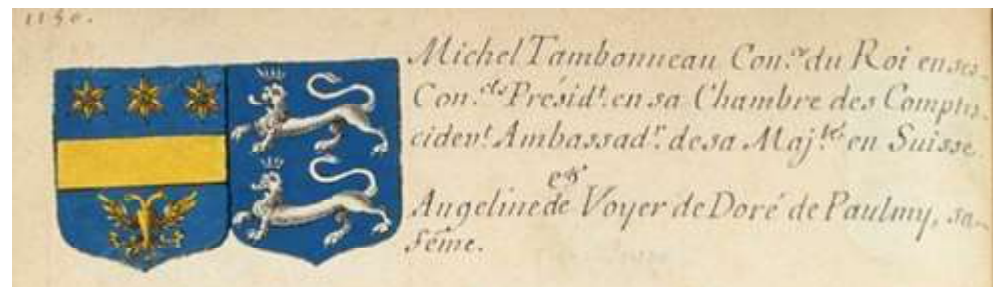 1130.
Michel Tambonneau Con.er du Roi en ses
Con.els Présid.t en sa Chambre des Comptes.
cidev.t Ambassad.r de sa Maj.té en Suisse.
et
Angeline de Voyer de Doré de Paulmy, sa
féme.